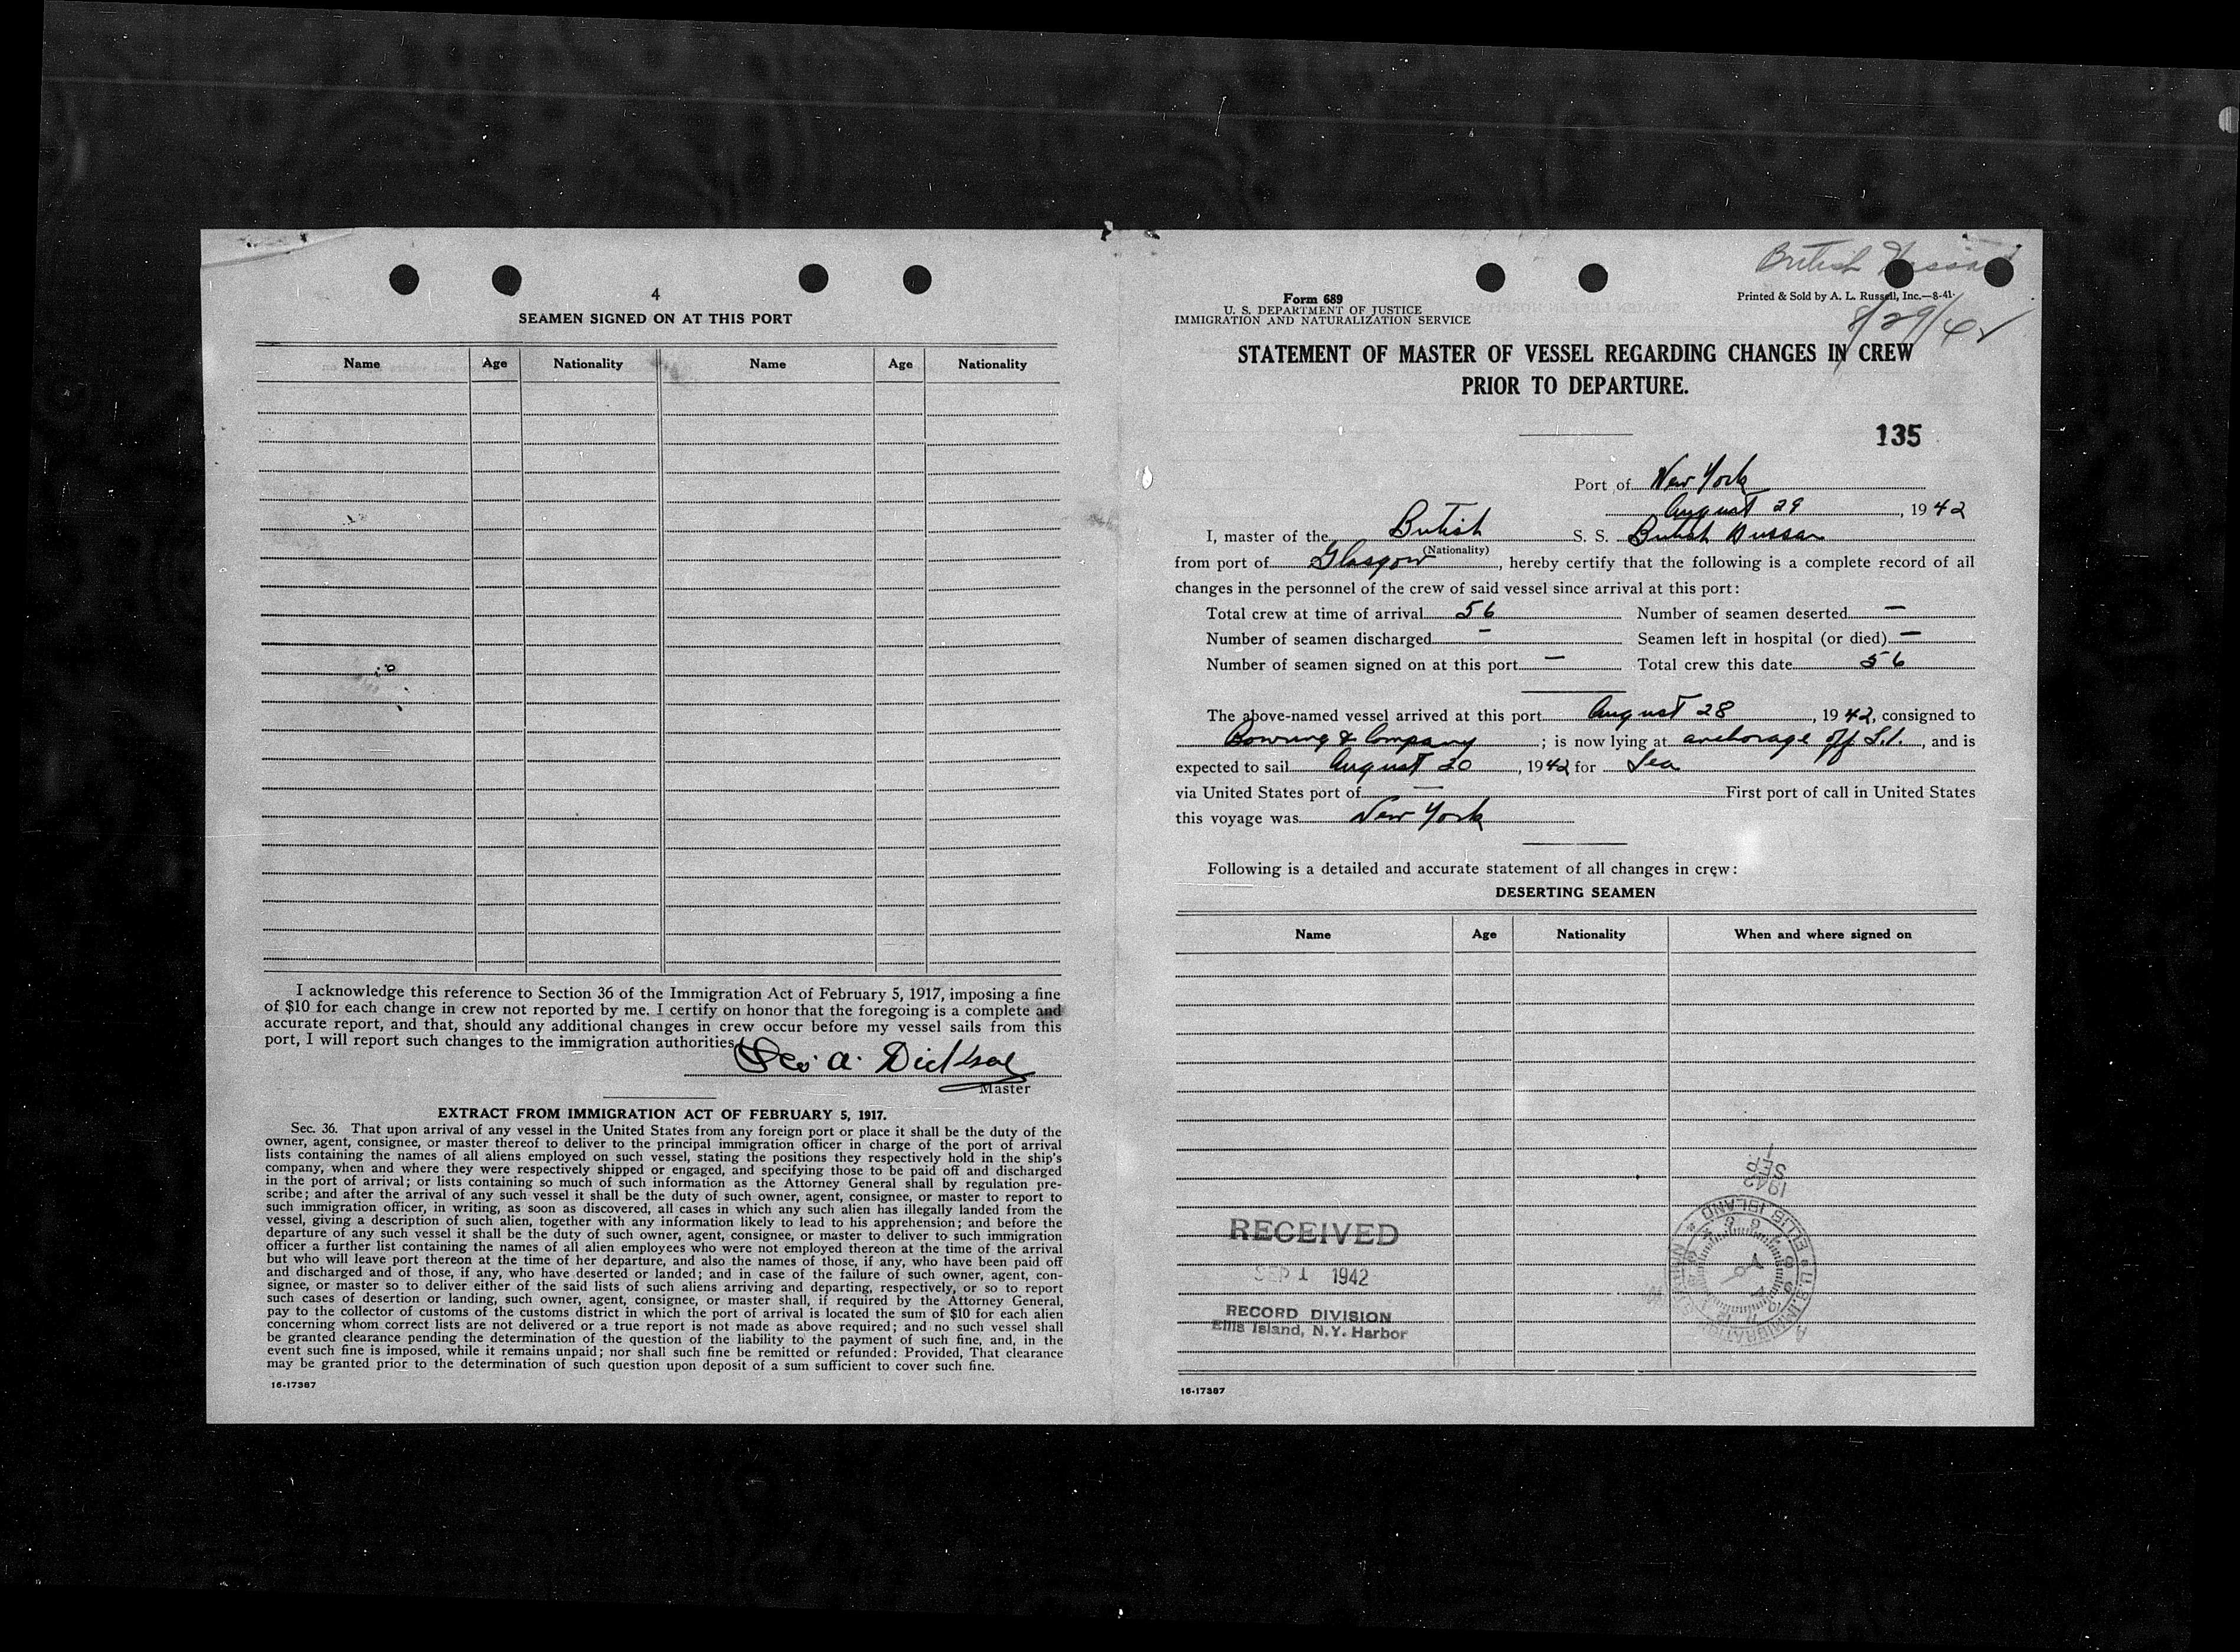 4
SEAMEN SIGNED ON AT THIS PORT
Name Age Nationality Name Age Nationality
I acknowledge this reference to Section 36 of the Immigration Act of February 5, 1917, imposing a fine
of $10 for each change in crew not reported by me. I certify on honor that the foregoing is a complete and
accurate report, and that, should any additional changes in crew occur before my vessel sails from this
port, I will report such changes to the immigration authorities.
Geo. A. Dickson
Master
EXTRACT FROM IMMIGRATION ACT OF FEBRUARY 5, 1917.
Sec. 36. That upon arrival of any vessel in the United States from any foreign port or place it shall be the duty of the
owner, agent, consignee, or master thereof to deliver to the principal immigration officer in charge of the port of arrival
lists containing the names of all aliens employed on such vessel, stating the positions they respectively hold in the ship's
company, when and where they were respectively shipped or engaged, and specifying those to be paid off and discharged
in the port of arrival; or lists containing so much of such information as the Attorney General shall by regulation pre-
scribe; and after the arrival of any such vessel it shall be the duty of such owner, agent, consignee, or master to report to
such immigration officer, in writing, as soon as discovered, all cases in which any such alien has illegally landed from the
vessel, giving a description of such alien, together with any information likely to lead to his apprehension; and before the
departure of any such vessel it shall be the duty of such owner, agent, consignee, or master to deliver to such immigration
officer a further list containing the names of all alien employees who were not employed thereon at the time of the arrival
but who will leave port thereon at the time of her departure, and also the names of those, if any, who have been paid off
and discharged and of those, if any, who have deserted or landed; and in case of the failure of such owner, agent, con-
signee, or master so to deliver either of the said lists of such aliens arriving and departing, respectively, or so to report
such cases of desertion or landing, such owner, agent, consignee, or master shall, if required by the Attorney General,
pay to the collector of customs of the customs district in which the port of arrival is located the sum of $10 for each alien
concerning whom correct lists are not delivered or a true report is not made as above required; and no such vessel shall
be granted clearance pending the determination of the question of the liability to the payment of such fine, and, in the
event such fine is imposed, while it remains unpaid; nor shall such fine be remitted or refunded: Provided, That clearance
may be granted prior to the determination of such question upon deposit of a sum sufficient to cover such fine.
16-17387
British Hussar
8/29/42
Form 689
U. S. DEPARTMENT OF JUSTICE
IMMIGRATION AND NATURALIZATION SERVICE
Printed & Sold by A. L. Russell, Inc.—8-41
STATEMENT OF MASTER OF VESSEL REGARDING CHANGES IN CREW
PRIOR TO DEPARTURE.
135
Port of New York
August 29, 1942
I, master of the British S. S. British Hussar
(Nationality)
from port of Glasgow, hereby certify that the following is a complete record of all
changes in the personnel of the crew of said vessel since arrival at this port:
Total crew at time of arrival 56 Number of seamen deserted —
Number of seamen discharged — Seamen left in hospital (or died) —
Number of seamen signed on at this port — Total crew this date 56
The above-named vessel arrived at this port August 28, 1942, consigned to
Bowring & Company; is now lying at anchorage off S.I., and is
expected to sail August 30, 1942 for Sea
via United States port of — First port of call in United States
this voyage was New York
Following is a detailed and accurate statement of all changes in crew:
DESERTING SEAMEN
Name Age Nationality When and where signed on
1942
SEP 1
ELLIS ISLAND
RECEIVED
SEP 1 1942
RECORD DIVISION
Ellis Island, N.Y. Harbor
16-17387